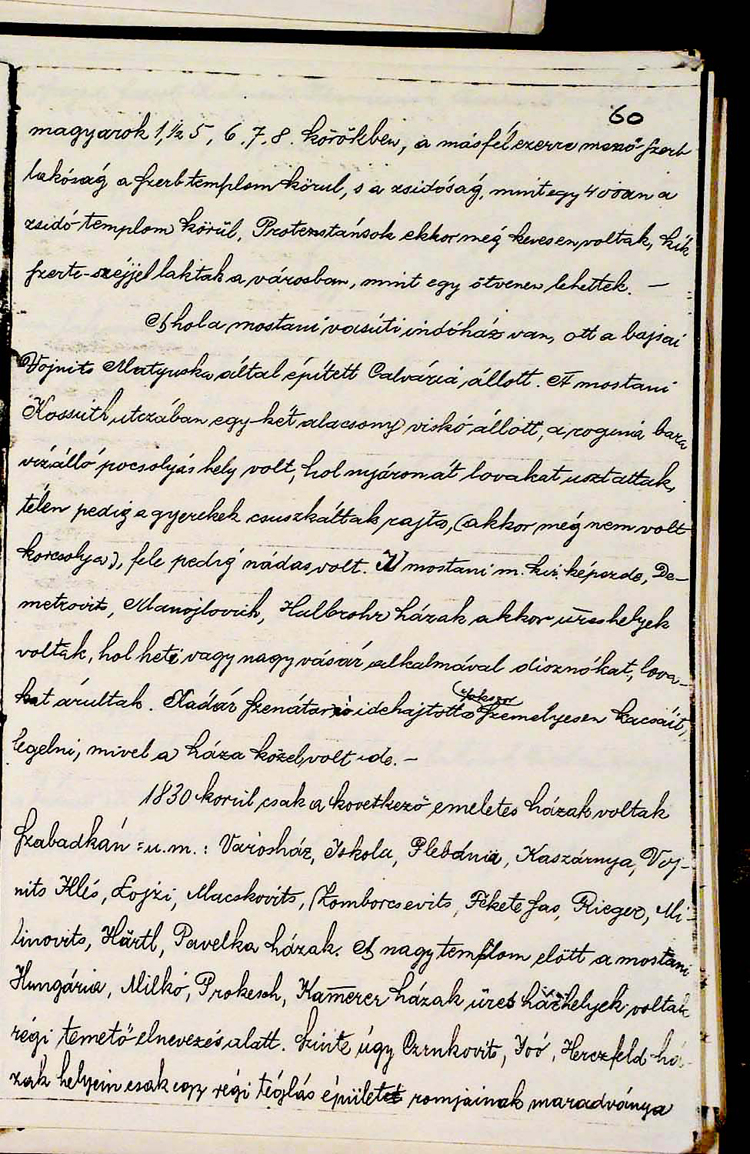 60
magyarok 1, ½ 5, 6. 7. 8. körökben, a másfélezerre menő szerb
lakóság a szerb templom körül, s a zsidóság, mint egy 400an a
zsidó templom körül, Protenstánsok ekkor még kevesen voltak, kik
szerte-széjjel laktak a városban, mint egy ötvenen lehettek. —
A hol a mostani vasúti indóház van, ott a bajsai
Vojnits Matyuska által épített Calvária állott. A mostani
Kossuth utczában egy-két alacsony viskó állott, a rogina bara
vizálló pocsolyás hely volt, hol nyáron át lovakat usztattak,
télen pedig a gyerekek csuszkáltak rajta, (akkor még nem volt
korcsolya), fele pedig nádas volt. A mostani m. kir. képezde, De-
metrovits, Manojlovich, Halbrohr házak akkor üres helyek
voltak, hol heti vagy nagy vásár alkalmával disznókat, lova-
kat árultak. Kadár szenátor idehajtotta személyesen kacsáit,
legelni, mivel a háza közel volt ide. —
1830 körül csak a következő emeletes házak voltak
Szabadkán = u. m. : Városház, Iskola, Plebánia, Kaszárnya, Voj-
nits Illés, Lojzi, Macskovits, Zomborcsevits, Fekete sas, Rieger, Mi-
linovits, Härtl, Pavelka házak. A nagy templom előtt a mostani
Hungária, Milkó, Prokesch, Kamerer házak üres házhelyek voltak
régi temető elnevezés alatt. Szinte úgy Czrnkovits, Joó, Herczfeld há-
zak helyein csak egy régi téglás épület romjainak maradványa